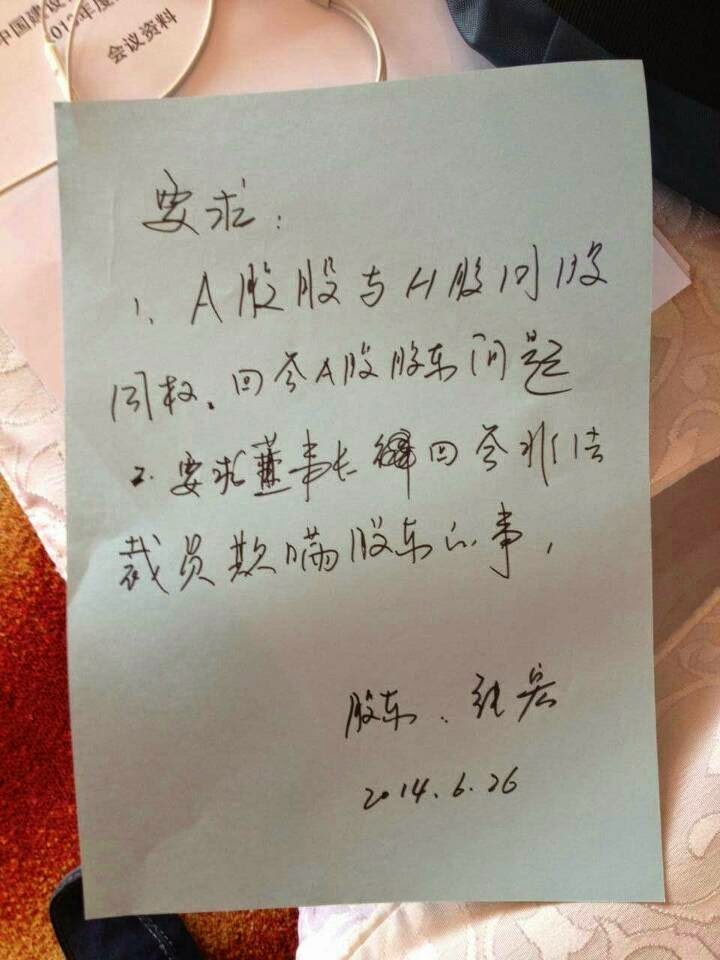 中国建设
01 年度
会议资料
要求：
1、A股股与H股同股
同权、回答A股股东问题
2. 要求董事长 回答非法
裁员欺瞒股东的事，
股东：张宏
2014.6.26